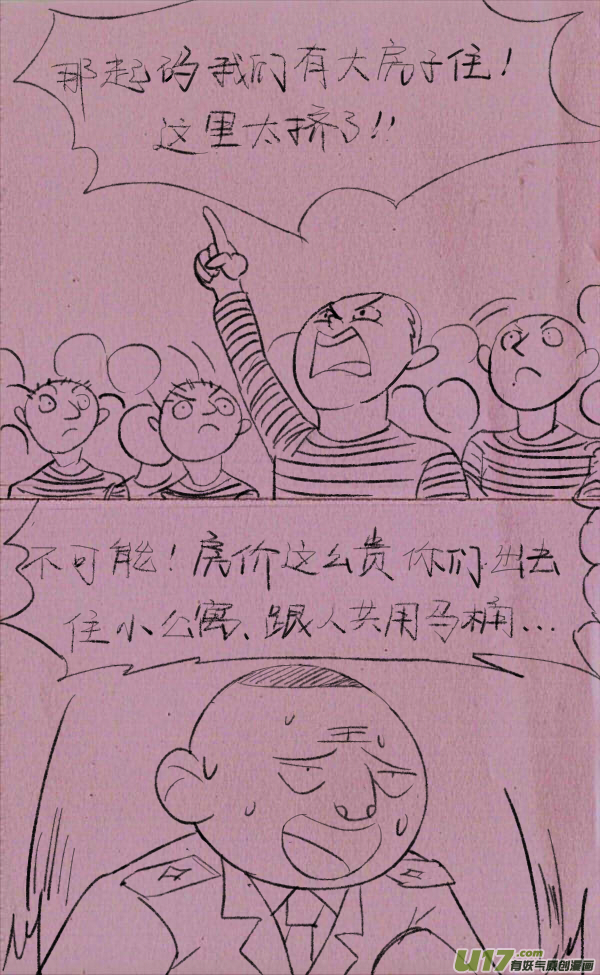 那起码我们有大房子住！
这里太挤了!!
不可能！房价这么贵你们出去
住小公寓、跟人共用马桶...
U17.com
有妖气原创漫画